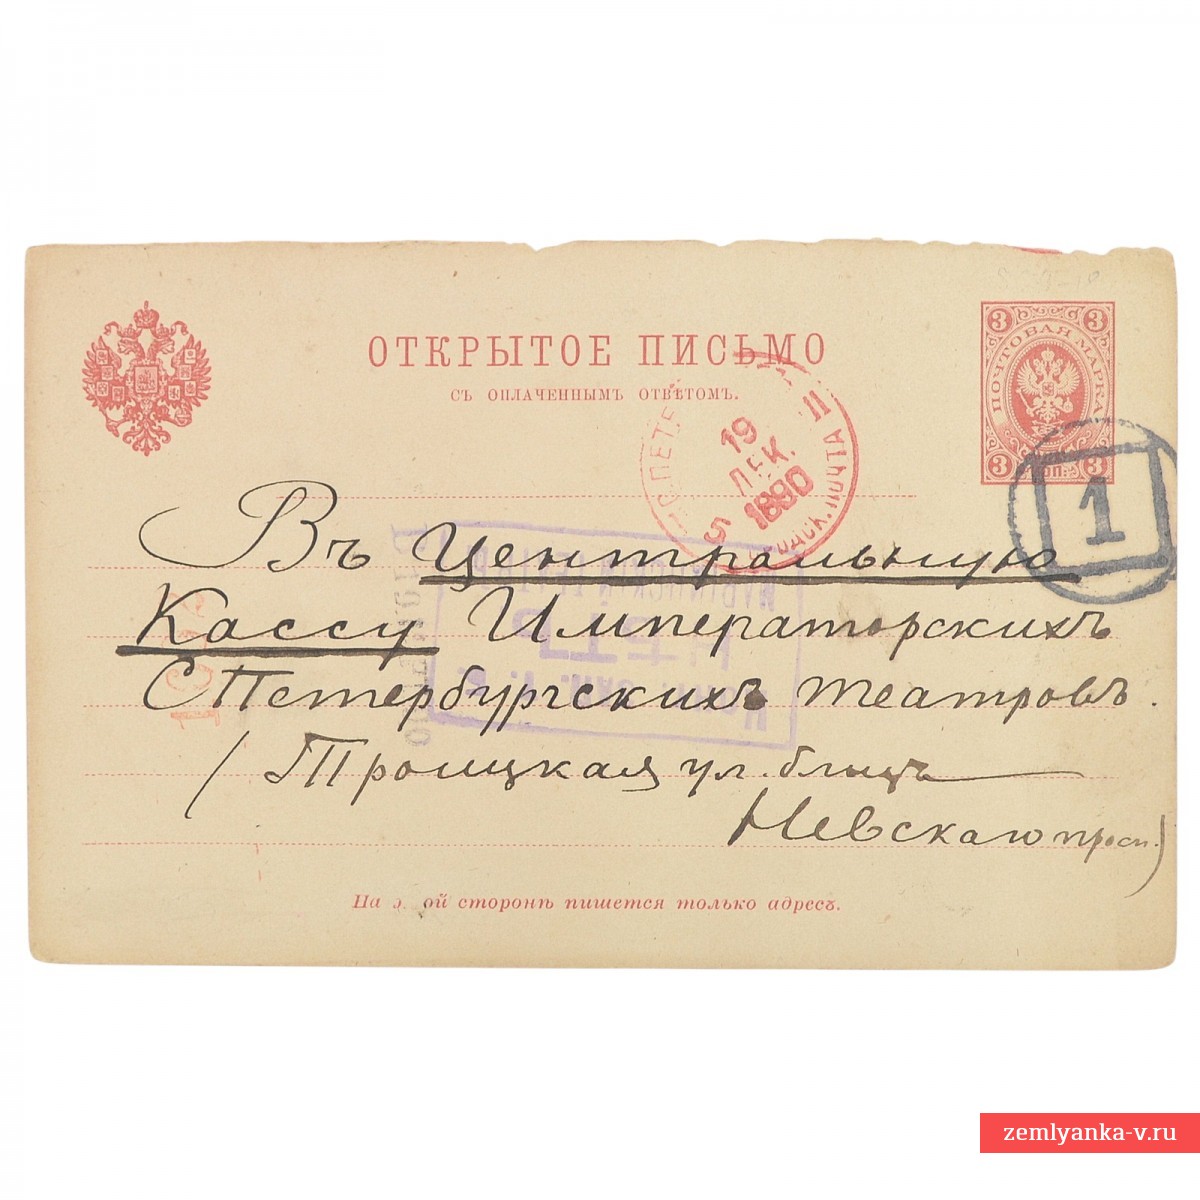 ОТКРЫТОЕ ПИСЬМО
СЪ ОПЛАЧЕННЫМЪ ОТВѢТОМЪ.
3 3
ПОЧТОВАЯ МАРКА
3 КОП. 3
19
ДЕК.
1890
5
1
Въ Центральную
Кассу Императорскихъ
СПетербургскихъ театровъ.
(Троицкая ул. близъ
Невскаго просп.)
На э ой сторонѣ пишется только адресъ.
zemlyanka-v.ru